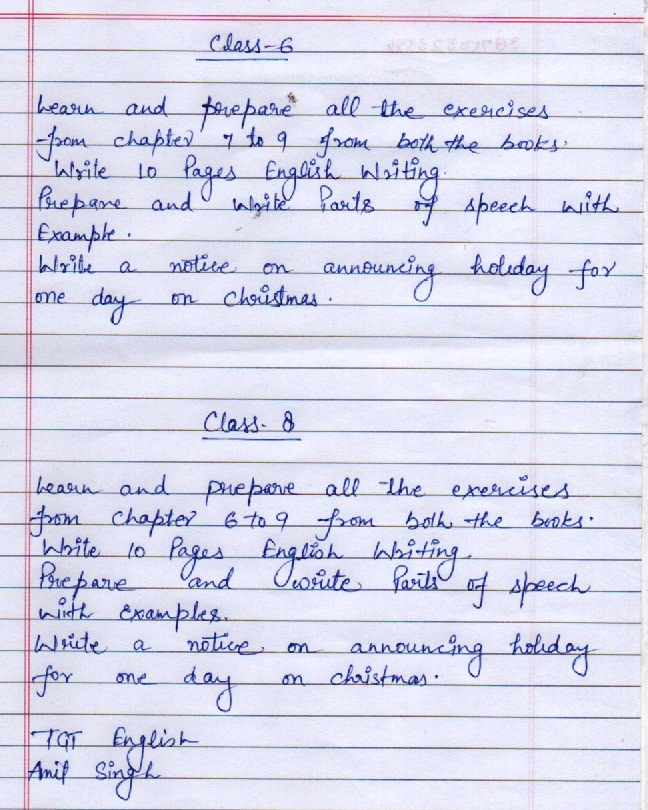 Class-6
Learn and prepare all the exercises
from chapter 7 to 9 from both the books.
Write 10 Pages English Writing.
Prepare and write Parts of speech with
Example.
Write a notice on announcing holiday for
one day on Christmas.
Class-8
Learn and prepare all the exercises
from chapter 6 to 9 from both the books.
Write 10 Pages English Writing.
Prepare and write Parts of speech
with examples.
Write a notice on announcing holiday
for one day on christmas.
TGT English
Anil Singh